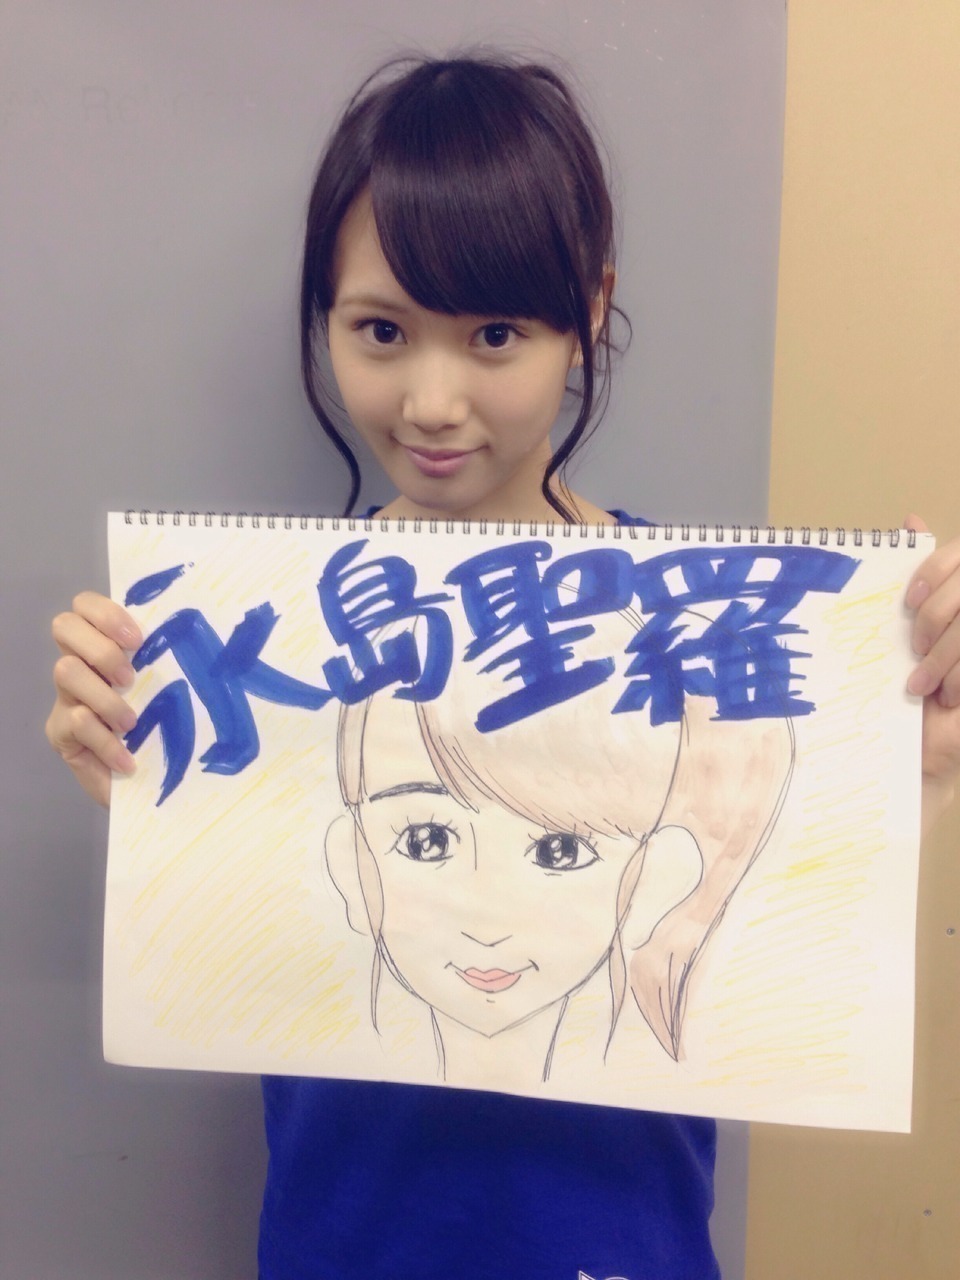 永島聖羅